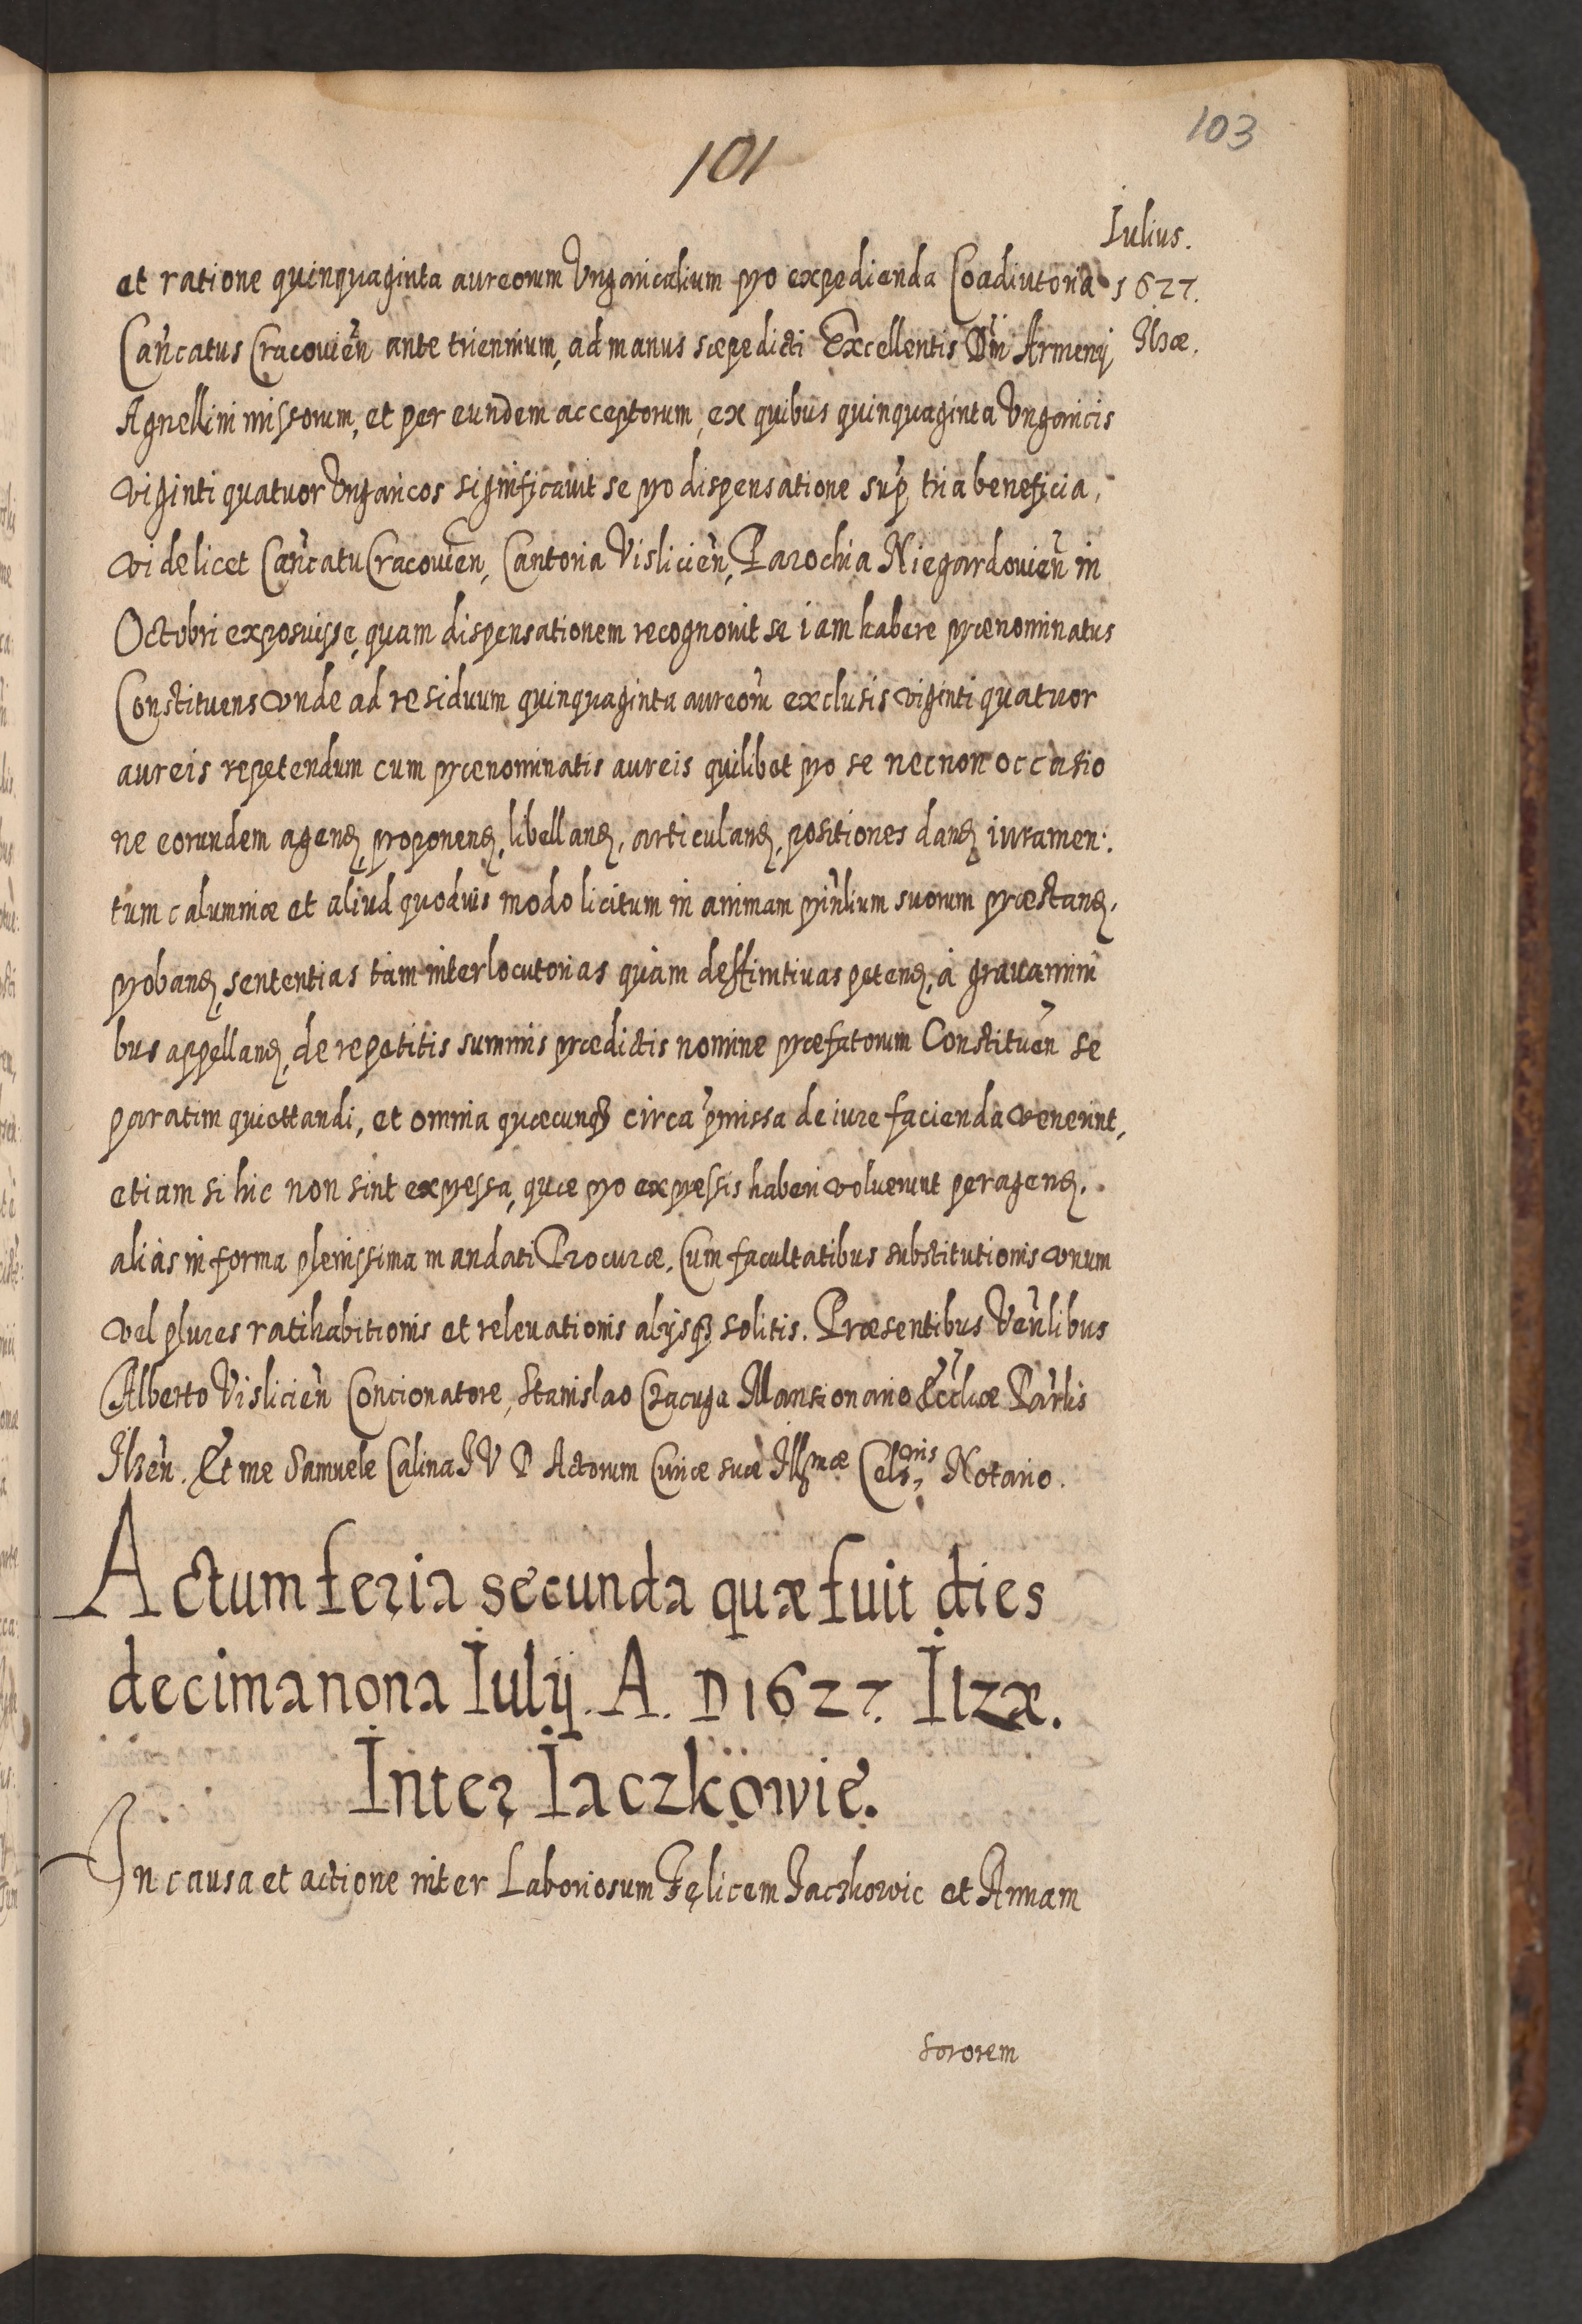 103
101
Iulius.
1627.
Ilzæ.
et ratione quinquaginta aureorum Vngaricalium pro expedienda Coadiutoria
Cañcatus Cracouien̄ ante triennium, ad manus sæpedicti Excellentis Dn̄i Armenij
Agnellini missorum, et per eundem acceptorum, ex quibus quinquaginta Vngaricis
viginti quatuor Vngaricos significauit se pro dispensatione sup̄ tria beneficia,
videlicet Cañcatu Cracouien̄, Cantoria Vislicien̄, Parochia Niegardouien̄ in
Octobri exposuisse, quam dispensationem recognouit se iam habere prænominatus
Constituens vnde ad residuum quinquaginta aureorū exclusis viginti quatuor
aureis repetendum cum prænominatis aureis quilibet pro se necnon occasio
ne eorundem agenđ, proponenđ, libellanđ, articulanđ, positiones danđ iuramen:
tum calumniæ et aliud quoduis modo licitum in animam prin̄lium suorum præstanđ,
probanđ, sententias tàm interlocutorias quàm deffinitiuas petenđ, à grauamini
bus appellanđ, de repetitis summis prædictis nomine præfatorum Constituen̄ se
paratim quiettandi, et omnia quæcunq₃ circa p̄missa de iure facienda venerint,
etiam si hic non sint expressa, quæ pro expressis haberi voluerunt peragenđ.
aliàs in forma plenissima mandati Procuræ, Cum facultatibus substitutionis vnum
vel plures ratihabitionis et releuationis alijsq₃ solitis. Præsentibus Ven̄libus
Alberto Vislicien̄ Concionatore, Stanislao Czacuga Mansionario Eccl̄iæ Par̄lis
Ilzen̄. Et me Samuele Calina I V D Actorum Curiæ suæ Illṃæ Cels.ris Notario.
Actum feria secunda quæ fuit dies
decimanona Iulij. A. D 1627. Ilzæ.
Inter Iaczkowie.
In causa et actione inter Laboriosum Fęlicem Iaczkowic et Annam
sororem